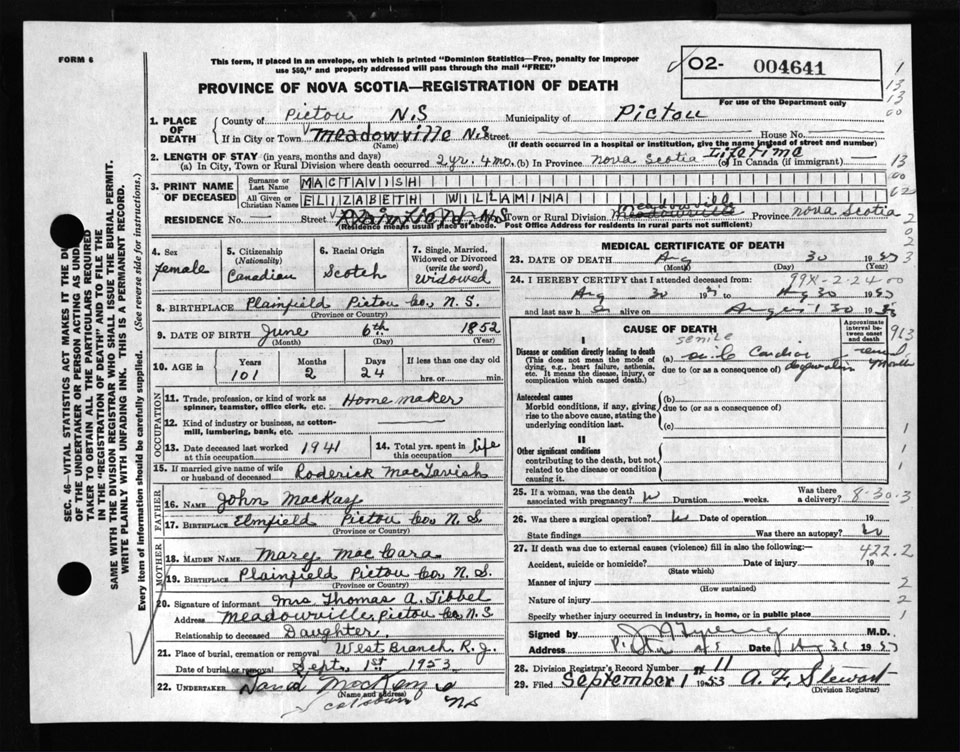 FORM 6
This form, if placed in an envelope, on which is printed "Dominion Statistics—Free, penalty for improper
use $50," and properly addressed will pass through the mail "FREE"
O2- 004641
PROVINCE OF NOVA SCOTIA—REGISTRATION OF DEATH
For use of the Department only
1. PLACE OF DEATH
County of Pictou N.S Municipality of Pictou
If in City or Town Meadowville N.S Street House No.
(Name) (If death occurred in a hospital or institution, give the name instead of street and number)
2. LENGTH OF STAY (in years, months and days)
(a) In City, Town or Rural Division where death occurred 2 yr. 4 mo. (b) In Province Nova Scotia Lifetime (c) In Canada (if immigrant) —
3. PRINT NAME OF DECEASED
Surname or Last Name MACTAVISH
All Given or Christian Names ELIZABETH WILLAMINA
RESIDENCE No. Street Plainfield N.S Town or Rural Division Meadowville Province Nova Scotia
(Residence means usual place of abode. Post Office Address for residents in rural parts not sufficient)
4. Sex female
5. Citizenship (Nationality) Canadian
6. Racial Origin Scotch
7. Single, Married, Widowed or Divorced (write the word) Widowed
8. BIRTHPLACE Plainfield Pictou Co. N.S.
(Province or Country)
9. DATE OF BIRTH June 6th 1852
(Month) (Day) (Year)
10. AGE in Years 101 Months 2 Days 24 If less than one day old
hrs. or min.
OCCUPATION
11. Trade, profession, or kind of work as spinner, teamster, office clerk, etc. Home maker
12. Kind of industry or business, as cotton-mill, lumbering, bank, etc. —
13. Date deceased last worked 1941 14. Total yrs. spent in life
15. If married give name of wife or husband of deceased Roderick MacTavish
FATHER
16. NAME John MacKay
17. BIRTHPLACE Elmfield Pictou Co. N.S.
(Province or Country)
MOTHER
18. MAIDEN NAME Mary MacCara
19. BIRTHPLACE Plainfield Pictou Co. N.S.
(Province or Country)
20. Signature of informant Mrs Thomas A. Tibbel
Address Meadowville, Pictou Co N.S
Relationship to deceased Daughter
21. Place of burial, cremation or removal West Branch R.J.
Date of burial or removal Sept. 1st 1953
22. UNDERTAKER David MacKenzie
(Name and address)
NS
MEDICAL CERTIFICATE OF DEATH
23. DATE OF DEATH Aug 30 1953
(Month) (Day) (Year)
24. I HEREBY CERTIFY that I attended deceased from
Aug 30 19 to Aug 30 1953
and last saw h alive on August 30 19
CAUSE OF DEATH
Approximate interval between onset and death
I
Disease or condition directly leading to death
(This does not mean the mode of dying, e.g., heart failure, asthenia, etc. It means the disease, injury, or complication which caused death.)
senile
(a) Cardiac
due to (or as a consequence of) degeneration
Antecedent causes
Morbid conditions, if any, giving rise to the above cause, stating the underlying condition last.
(b)
due to (or as a consequence of)
(c)
II
Other significant conditions
contributing to the death, but not related to the disease or condition causing it.
25. If a woman, was the death associated with pregnancy? Duration weeks. Was there a delivery?
8-30.3
26. Was there a surgical operation? Date of operation 19
State findings Was there an autopsy?
27. If death was due to external causes (violence) fill in also the following:—
422.2
Accident, suicide or homicide? Date of injury 19
(State which)
Manner of injury
(How sustained)
Nature of injury
Specify whether injury occurred in industry, in home, or in public place
Signed by M.D.
Address Date Aug 31 1953
28. Division Registrar's Record Number # 11
29. Filed September 1 1953 A. F. Stewart
(Division Registrar)
SEC. 46—VITAL STATISTICS ACT MAKES IT THE
OF THE UNDERTAKER OR PERSON ACTING AS
TAKER TO OBTAIN ALL THE PARTICULARS REQUIRED
IN THE "REGISTRATION OF DEATH" AND TO FILE THE
SAME WITH THE DIVISION REGISTRAR WHO SHALL ISSUE THE BURIAL PERMIT.
WRITE PLAINLY WITH UNFADING INK. THIS IS A PERMANENT RECORD.
Every item of information should be carefully supplied. (See reverse side for instructions.)